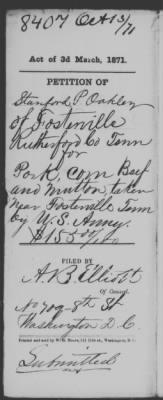 8407 Oct 13/71
Act of 3d March, 1871.
PETITION OF
Stanford P. Oakley
of Fosterville
Rutherford Co Tenn
for
Pork, Corn Beef
and Mutton, taken
Near Fosterville Tenn
by U.S. Army.
FILED BY
A. B. Elliott
Of Counsel.
No 709-8th St
Washington D.C.
Printed and sold by W. H. Moore, 511 11th st., Washington, D. C.
Submitted